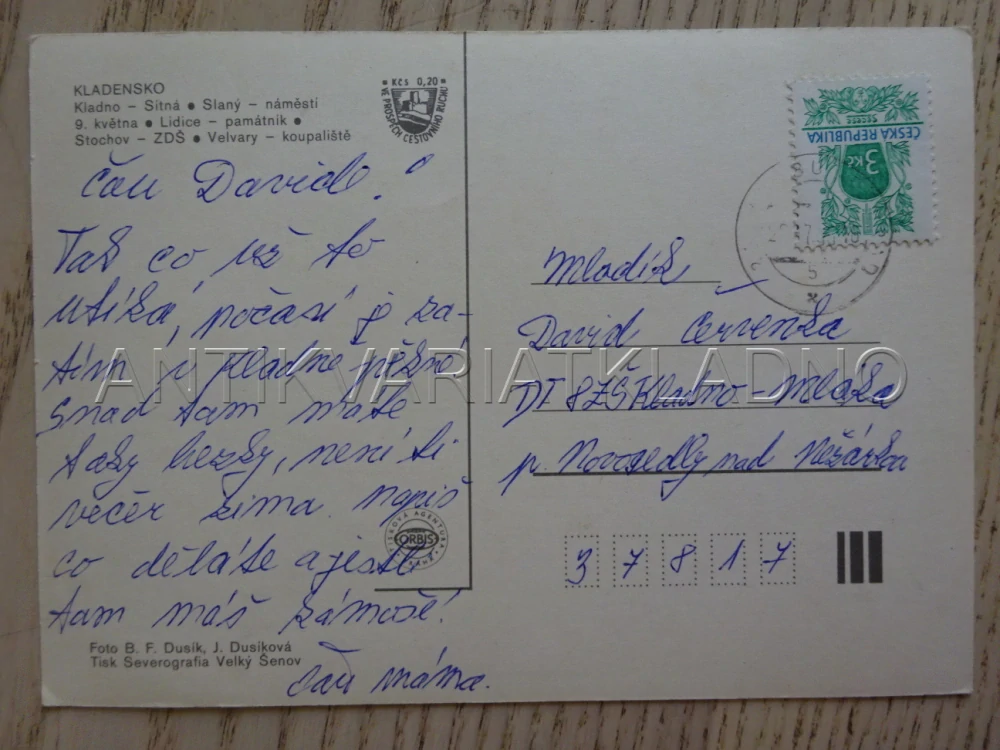 KLADENSKO
Kladno – Sítná ● Slaný – náměstí
9. května ● Lidice – památník ●
Stochov – ZDŠ ● Velvary – koupaliště
Kčs 0,20
VE PROSPĚCH CESTOVNÍHO RUCHU
ČESKÁ REPUBLIKA
3 Kč
Čau Davide!
Tak co už to
utíká, počasí je za-
tím i na pěkné
Snad tam máte
taky hezky, není ti
večer zima. napiš
co děláte a jestli
tam máš kámoše!
čau máma.
Mladík
David Červenka
DT 8 ZŠ Kladno – Mláka
p. Novosedly nad Nežárkou
3 7 8 1 7
ORBIS
Foto B. F. Dusík, J. Dusíková
Tisk Severografia Velký Šenov
ANTIKVARIATKLADNO